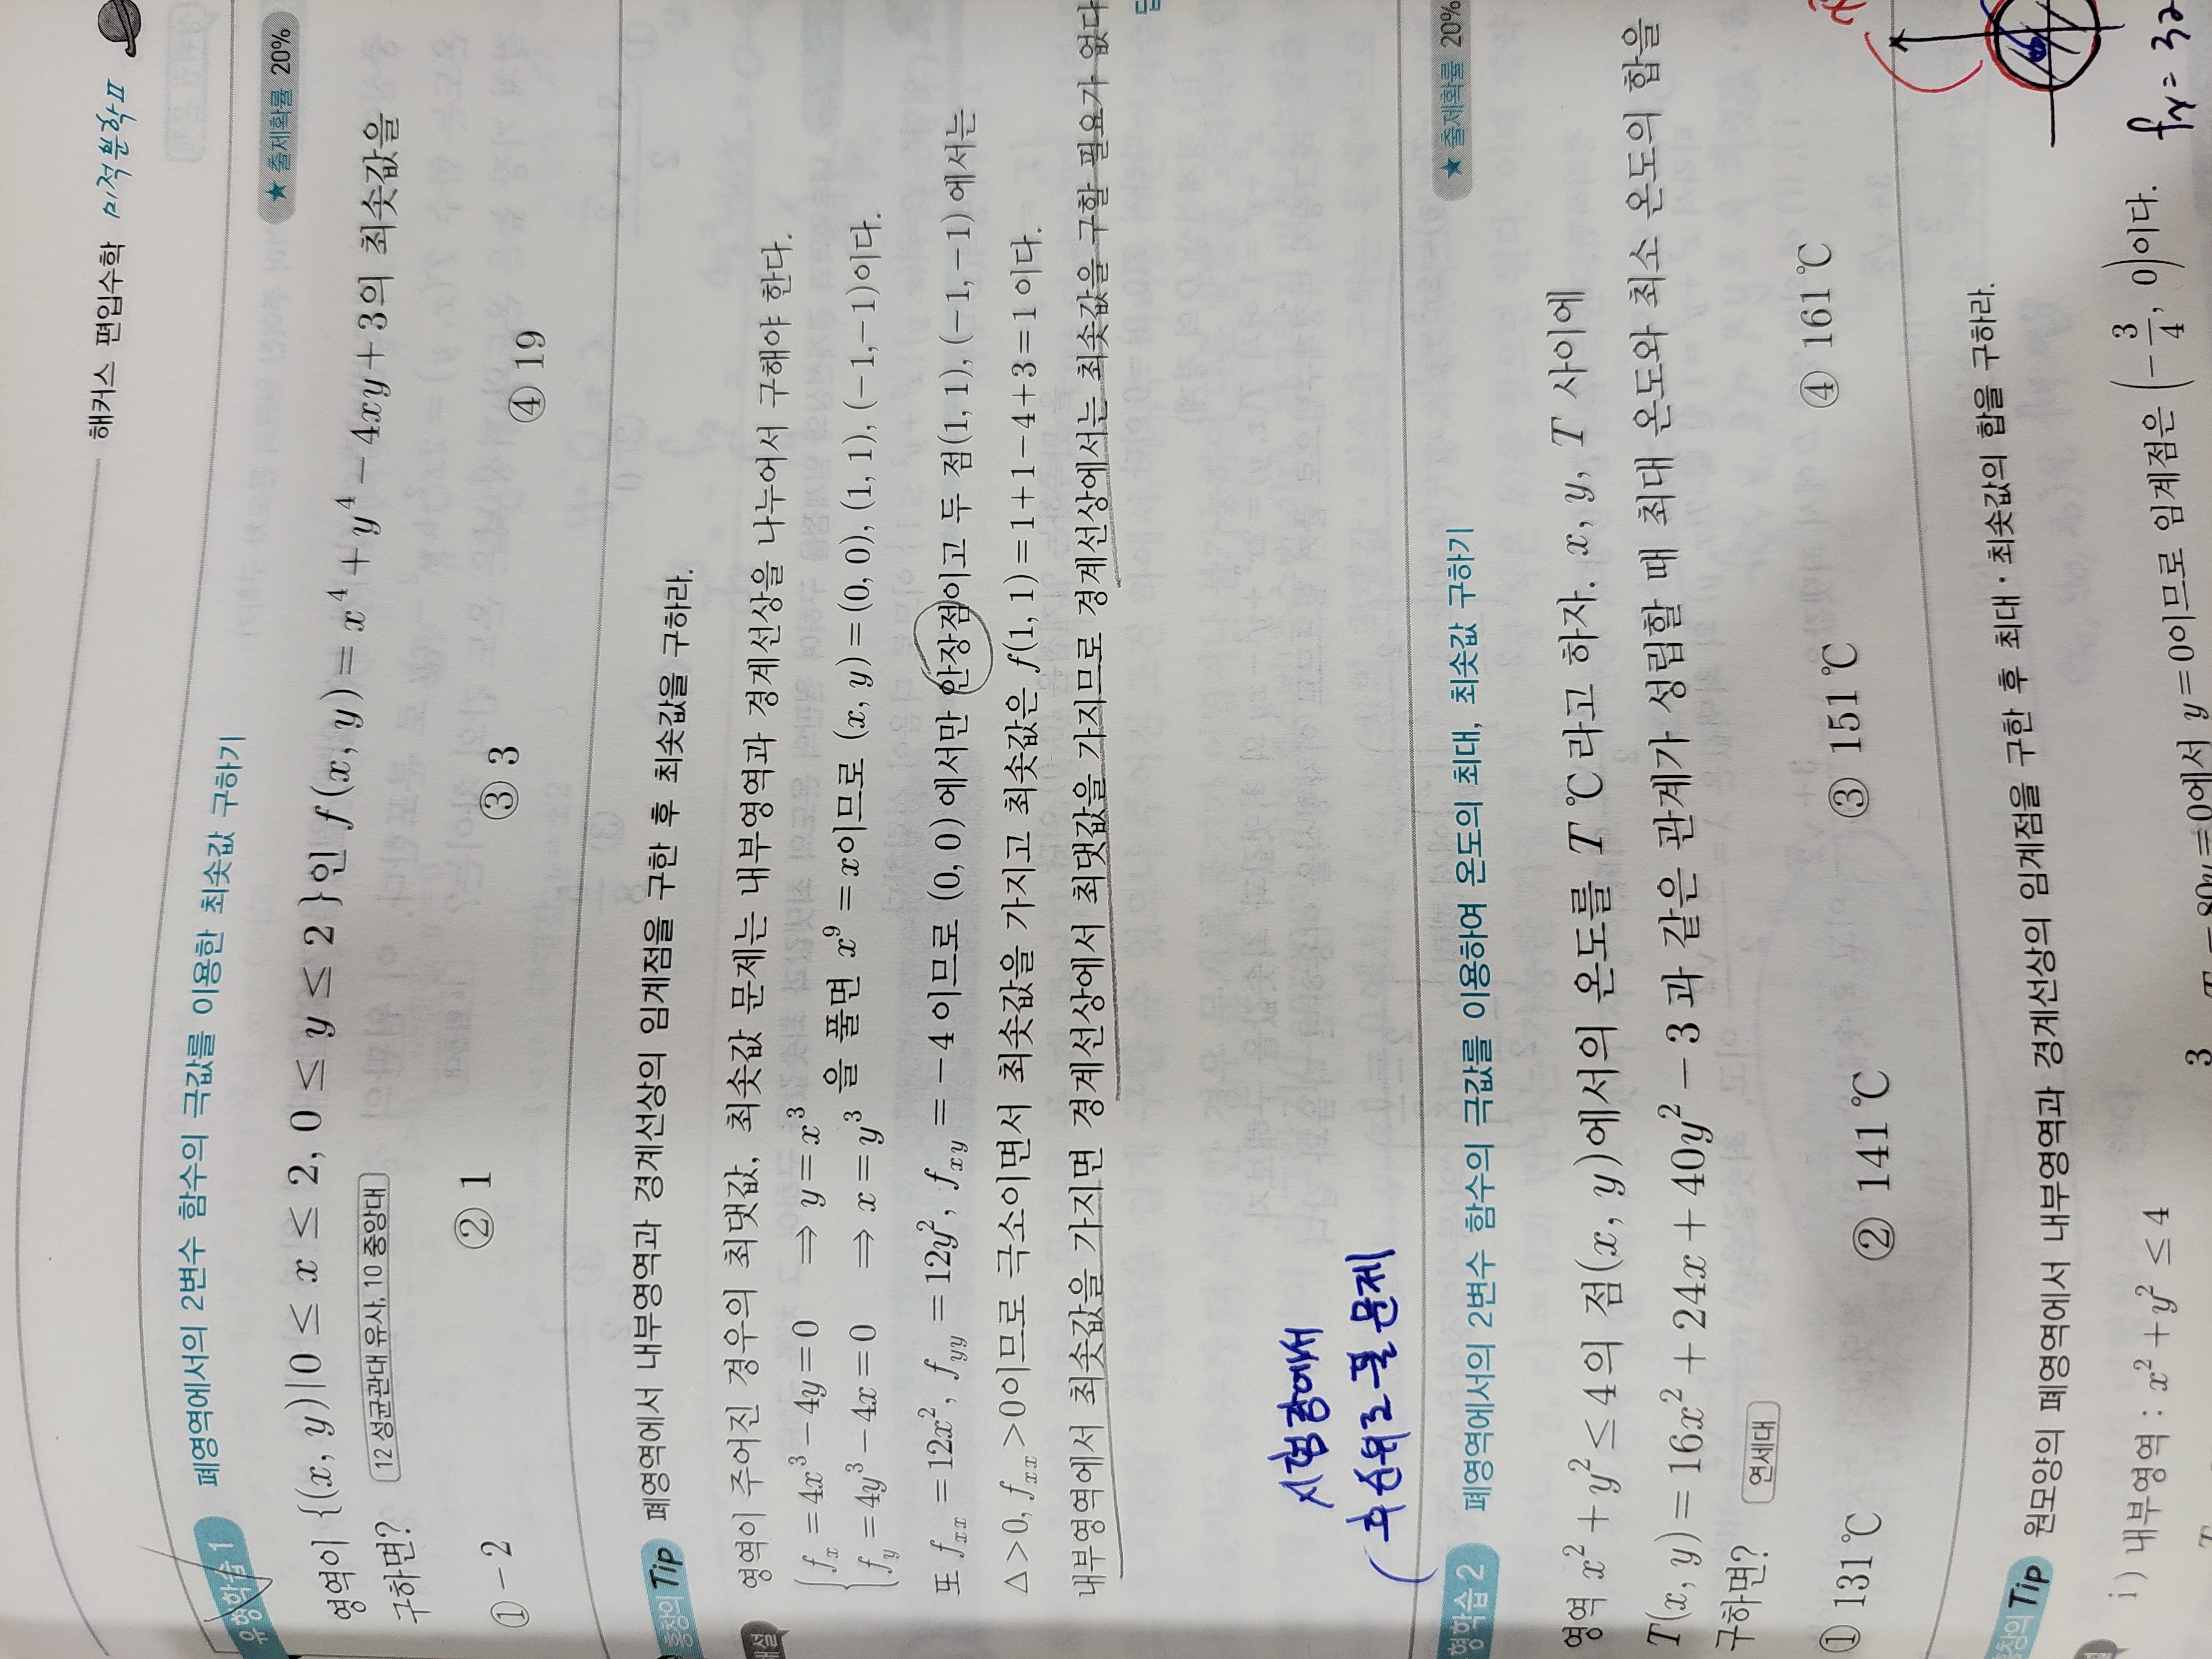 해커스 편입수학 미적분학 II
유형학습 1 폐영역에서의 2변수 함수의 극값를 이용한 최솟값 구하기 ★ 출제확률 20%
영역이 {(x, y)|0 ≤ x ≤ 2, 0 ≤ y ≤ 2}인 f(x, y) = x⁴ + y⁴ − 4xy + 3의 최솟값을
구하면? 12 성균관대 유사, 10 중앙대
① −2 ② 1 ③ 3 ④ 19
Tip 폐영역에서 내부영역과 경계선상의 임계점을 구한 후 최솟값을 구하라.
영역이 주어진 경우의 최댓값, 최솟값 문제는 내부영역과 경계선상을 나누어서 구해야 한다.
{ fₓ = 4x³ − 4y = 0 ⇒ y = x³
f_y = 4y³ − 4x = 0 ⇒ x = y³ 을 풀면 x⁹ = x이므로 (x, y) = (0, 0), (1, 1), (−1, −1)이다.
또 f_xx = 12x², f_yy = 12y², f_xy = −4 이므로 (0, 0) 에서만 안장점이고 두 점(1, 1), (−1, −1)에서는
Δ > 0, f_xx > 0이므로 극소이면서 최솟값을 가지고 최솟값은 f(1, 1) = 1 + 1 − 4 + 3 = 1 이다.
내부영역에서 최솟값을 가지면 경계선상에서 최댓값을 가지므로 경계선상에서는 최솟값을 구할 필요가 없다
시험장에서
문제
형학습 2 폐영역에서의 2변수 함수의 극값를 이용하여 온도의 최대, 최솟값 구하기 ★ 출제확률 20%
영역 x² + y² ≤ 4의 점(x, y)에서의 온도를 T ℃라고 하자. x, y, T 사이에
T(x, y) = 16x² + 24x + 40y² − 3 과 같은 관계가 성립할 때 최대 온도와 최소 온도의 합을
구하면? 연세대
① 131℃ ② 141℃ ③ 151℃ ④ 161℃
Tip 원모양의 폐영역에서 내부영역과 경계선상의 임계점을 구한 후 최대·최솟값의 합을 구하라.
i) 내부영역 : x² + y² ≤ 4
3
80y = 0에서 y = 0이므로 임계점은 (−3/4, 0)이다.